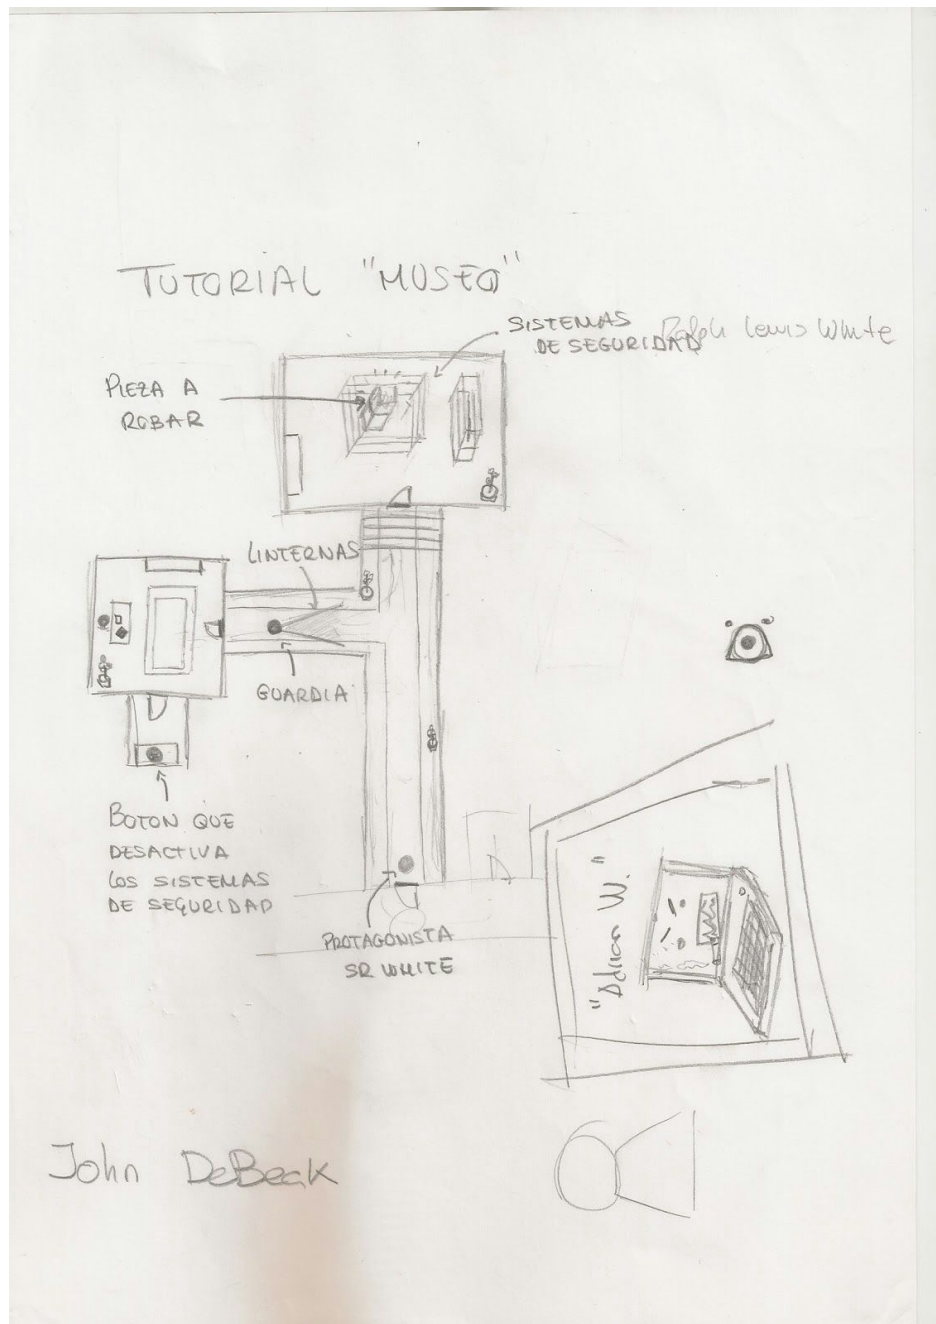 TUTORIAL "MUSEO"
SISTEMAS
DE SEGURIDAD
Ralph Lewis White
PIEZA A
ROBAR
LINTERNAS
GUARDIA
BOTON QUE
DESACTIVA
LOS SISTEMAS
DE SEGURIDAD
PROTAGONISTA
SR WHITE
"Adrian W."
John DeBeak